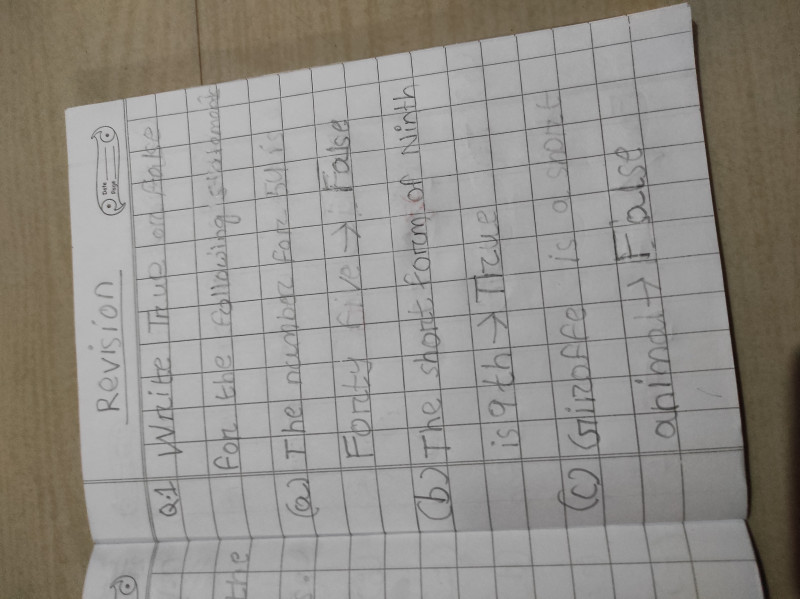 Revision
Date
Page
Q.1 Write True or False
for the following statment
(a) The number for 54 is
Forty five → False
(b) The short form of Ninth
is 9th → True
(c) Giraffe is a short
animal → False
the
s.